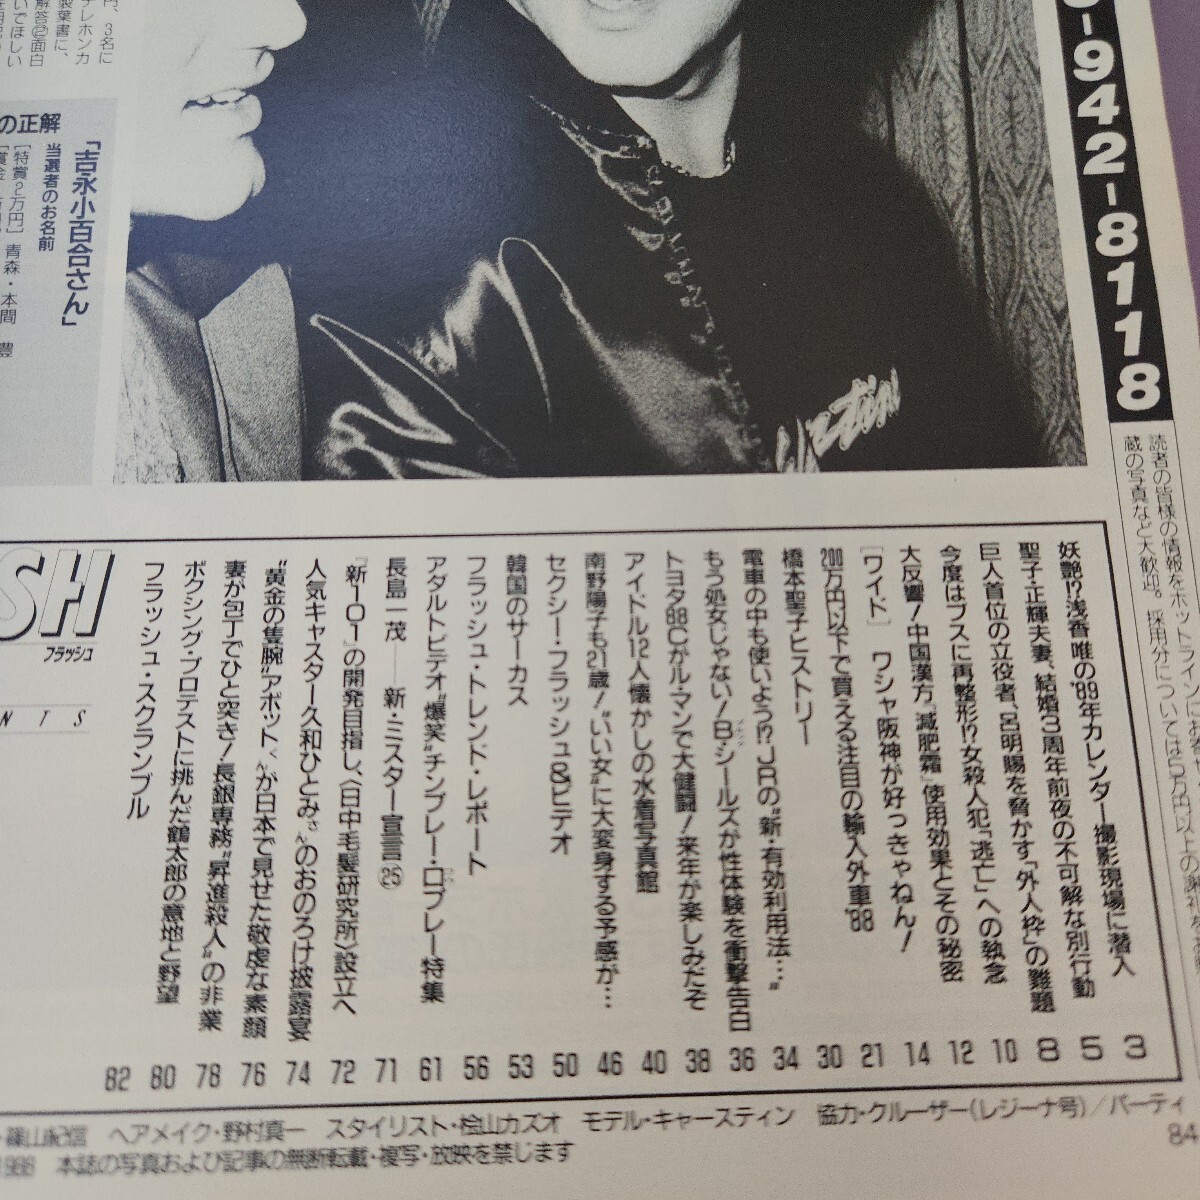 円、3名に
テレホンカ
製葉書に、
解答②面白
いでほしい
の正解
「吉永小百合さん」
当選者のお名前
[特賞2万円] 青森・本間 豊
-942-8118
読者の皆様の情報をホットラインに
蔵の写真など大歓迎。採用分については5万円以上の謝礼を
SH
フラッシュ
NTS
妖艶!?浅香唯の'89年カレンダー撮影現場に潜入 3
聖子・正輝夫妻、結婚3周年前夜の不可解な別行動 5
巨人首位の立役者、呂明賜を脅かす「外人枠」の難題 8
今度はブスに再整形!?女殺人犯「逃亡」への執念 10
大反響!中国漢方『減肥霜』使用効果とその秘密 12
[ワイド] ワシャ阪神が好っきゃねん! 14
200万円以下で買える注目の輸入外車'88 21
橋本聖子ヒストリー 30
電車の中も使いよう!?JRの“新・有効利用法…” 34
もう処女じゃない!B・シールズが性体験を衝撃告白 36
トヨタ88Cがル・マンで大健闘!来年が楽しみだぞ 38
アイドル12人懐かしの水着写真館 40
南野陽子も21歳!“いい女”に大変身する予感が… 46
セクシー・フラッシュ&ビデオ 50
韓国のサーカス 53
フラッシュ・トレンド・レポート 56
アダルトビデオ“爆笑”チンプレー・ロプレー特集 61
長島一茂――新・ミスター宣言㉕ 71
『新・101』の開発目指し、〈日中毛髪研究所〉設立へ 72
人気キャスター久和ひとみさんのおのろけ披露宴 74
“黄金の隻腕”アボットくんが日本で見せた敬虔な素顔 76
妻が包丁でひと突き!長銀専務“昇進殺人”の非業 78
ボクシング・プロテストに挑んだ鶴太郎の意地と野望 80
フラッシュ・スクランブル 82
・篠山紀信 ヘアメイク・野村真一 スタイリスト・桧山カズオ モデル・キャースティン 協力・クルーザー(レジーナ号)/パーティ
1988 本誌の写真および記事の無断転載・複写・放映を禁じます
84